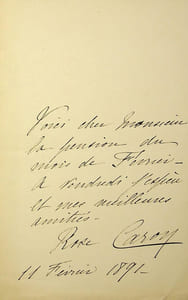 Voici cher Monsieur
la pension du
mois de Février -
à vendredi j'espère
et mes meilleures
amitiés -
Rose Caron
11 Février 1891 -